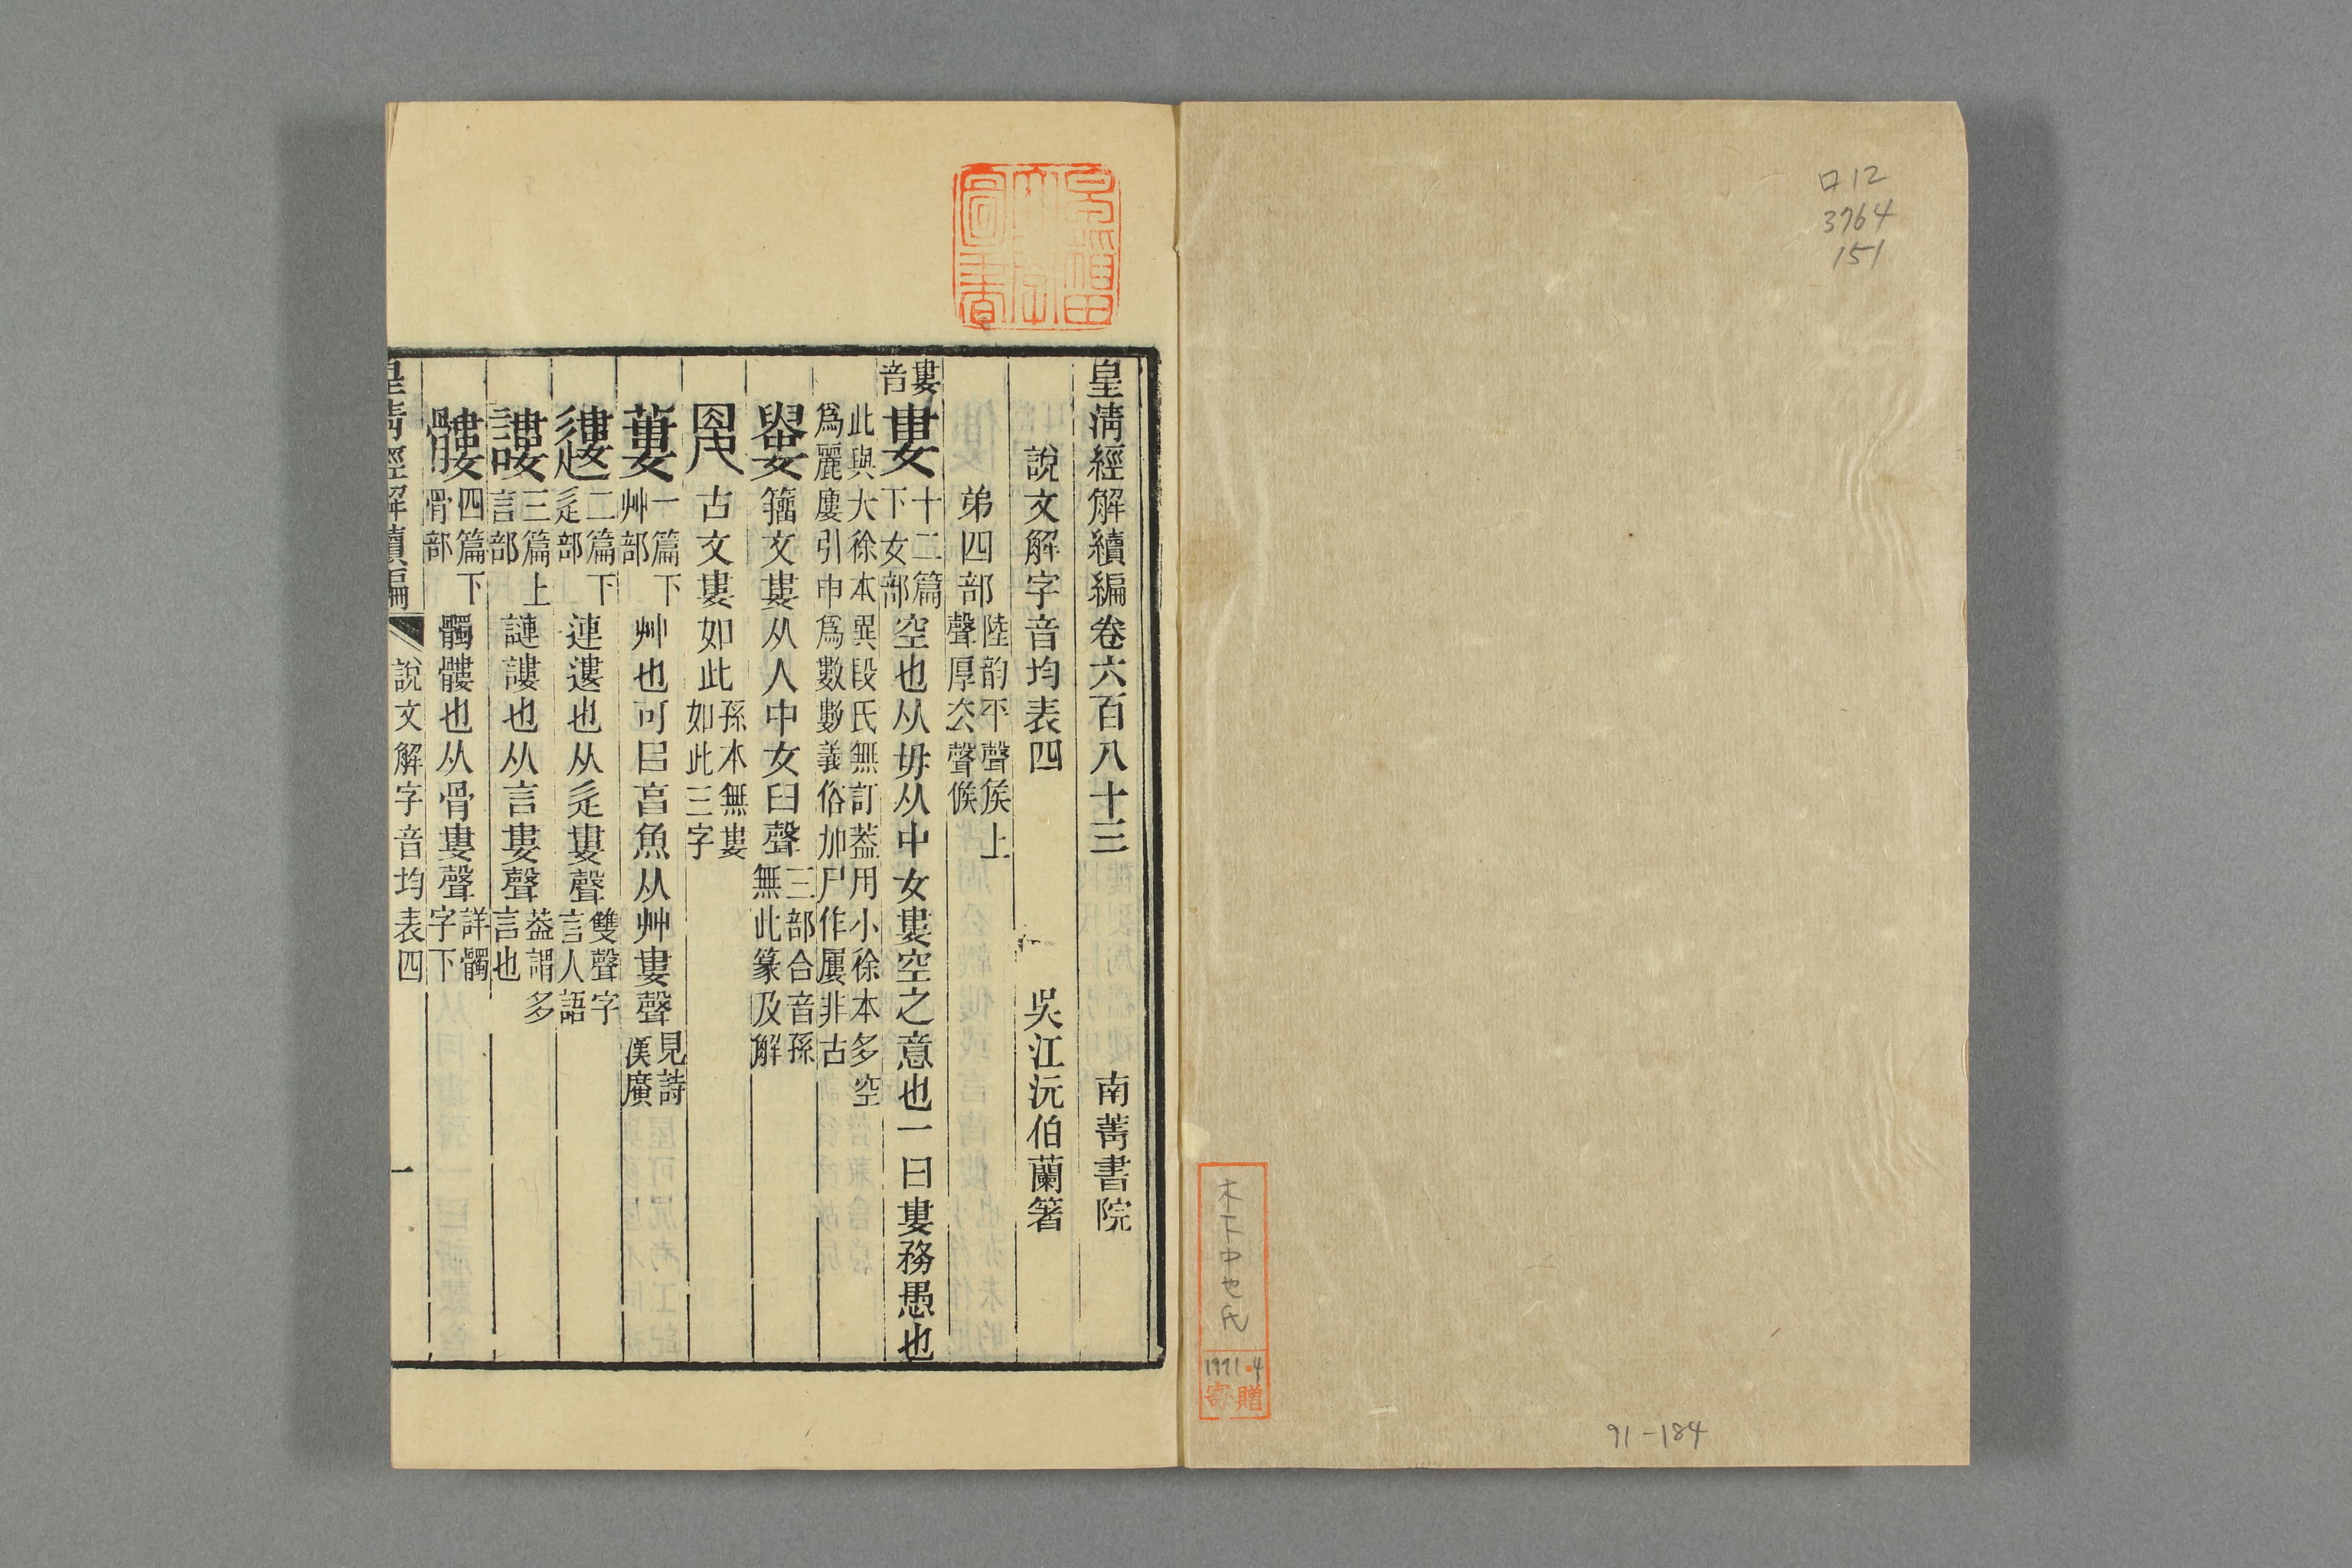 口12
3764
151
木下中也氏
1971.4
寄贈
91-184
皇清經解續編卷六百八十三 南菁書院
說文解字音均表四 吳江沅伯蘭箸
弟四部 陸韵平聲矦上
聲厚厺聲候
婁
音
婁 十二篇
下女部 空也从毋从中女婁空之意也一曰婁務愚也
此與大徐本異段氏無訂葢用小徐本多空
爲麗廔引申爲數數義俗加尸作屢非古
籒文婁从人中女𦥑聲 三部合音孫
無此篆及解
古文婁如此 孫本無婁
如此三字
蔞 一篇下
艸部 艸也可㠯亯魚从艸婁聲 見詩
漢廣
遱 二篇下
辵部 連遱也从辵婁聲 雙聲字
言人語
謱 三篇上
言部 謰謱也从言婁聲 葢謂多
言也
髏 四篇下
骨部 髑髏也从骨婁聲 詳髑
字下
皇清經解續編 說文解字音均表四 一